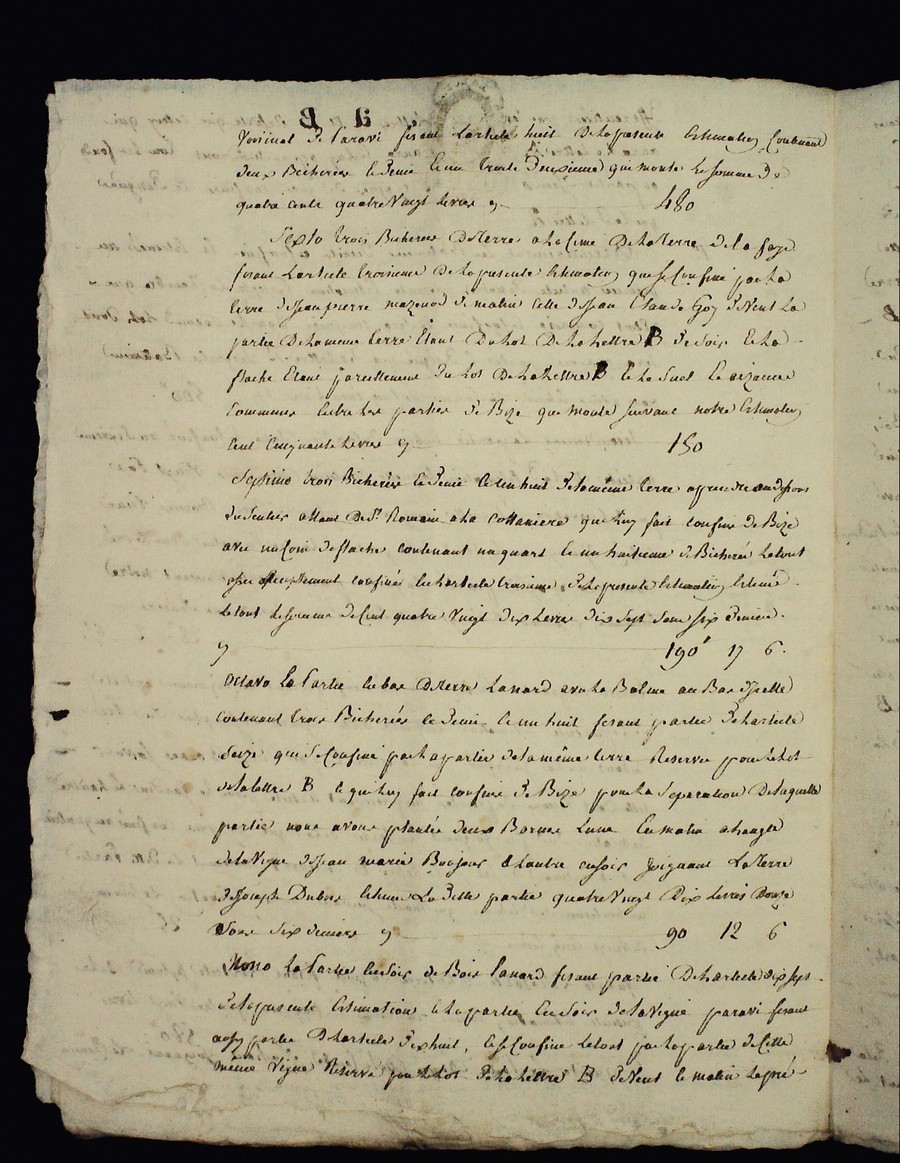 a B
de Paravi fesant Larticle huit de la presente Estimation Contenant
deux Bicherées et demie et un trente deuxieme que monte Le somme de
quatre cents quatre Vingt Livres cy 480
Sexto trois Bicherées de terre a la Cime de la terre de la faye
fesant Larticle troisieme de la presente Estimation que se Confine par La
terre de Jean pierre mazenod de matin celle de Jean Claude Goy de Vent La
partie de la meme terre Etant du Lot de la Lettre B de soir et La
flache Etant pareillement du Lot de la Lettre B et le Suel et aizances
Communes entre Les parties de Bize que monte suivant notre Estimation
Cent Cinquante Livres cy 150
Septimo trois Bicherées et demie et un huit de la même terre a prendre au dessous
du sentier allant de St. Romain a la Cottaniere que luy fait confins de Bize
avec un Coin de flache contenant un quart et un huitieme de Bicherée Le tout
confiné en Larticle troisieme de la presente Estimation Estimé
Le tout Le somme de Cent quatre Vingt dix Livres dix sept sous six deniers
cy 190 17 6
Octavo La Partie en bas de terre Lanard avu La Balme au Bas d'icelle
contenant trois Bicherées et demie et un huit fesant partie de Larticle
seize que se Confine par La partie de la même terre Reservée pour le Lot
de la Lettre B et qui luy fait confins de Bize pour La Separation de Laquelle
partie nous avons plantée deux Bornes Lune en matin a Langle
de la Vigne de Jean marie Bonjour et Lautre en soir joignant La terre
de Joseph Dubos Estimé La ditte partie quatre Vingt Dix Livres Douze
Sous Six deniers cy 90 12 6
Nono La Partie en soir de Bois Lanard fesant partie de Larticle dix sept
de la presente Estimation et La partie en soir de la Vigne paravi fesant
aussy partie de Larticle dixhuit, et se Confine Le tout par La partie de Cette
même Vigne Reservé pour le Lot de la Lettre B de Vent et matin Le pré